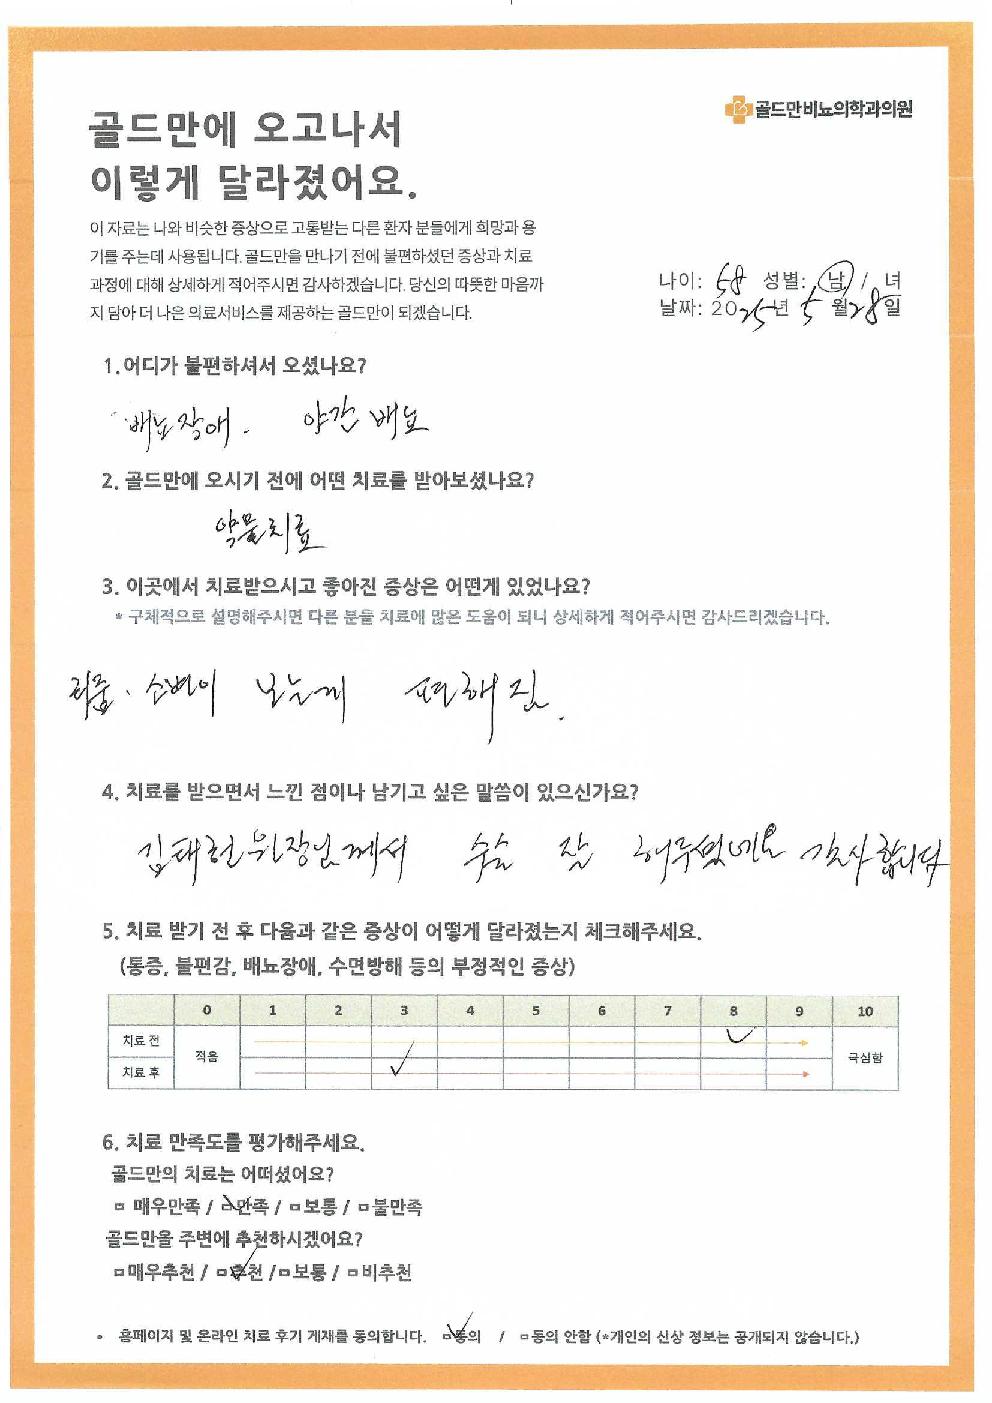 골드만비뇨의학과의원
골드만에 오고나서
이렇게 달라졌어요.
이 자료는 나와 비슷한 증상으로 고통받는 다른 환자 분들에게 희망과 용
기를 주는데 사용됩니다. 골드만을 만나기 전에 불편하셨던 증상과 치료
과정에 대해 상세하게 적어주시면 감사하겠습니다. 당신의 따뜻한 마음까
지 담아 더 나은 의료서비스를 제공하는 골드만이 되겠습니다.
나이: 58 성별: 남 / 녀
날짜: 2025년 5월 28일
1. 어디가 불편하셔서 오셨나요?
배뇨장애. 야간 배뇨
2. 골드만에 오시기 전에 어떤 치료를 받아보셨나요?
약물치료
3. 이곳에서 치료받으시고 좋아진 증상은 어떤게 있었나요?
* 구체적으로 설명해주시면 다른 분들 치료에 많은 도움이 되니 상세하게 적어주시면 감사드리겠습니다.
소변이 보는게 편해짐.
4. 치료를 받으면서 느낀 점이나 남기고 싶은 말씀이 있으신가요?
원장님께서 수술 잘 해주셨네요 감사합니다
5. 치료 받기 전 후 다음과 같은 증상이 어떻게 달라졌는지 체크해주세요.
(통증, 불편감, 배뇨장애, 수면방해 등의 부정적인 증상)
0 1 2 3 4 5 6 7 8 9 10
치료 전
적음
극심함
치료 후
6. 치료 만족도를 평가해주세요.
골드만의 치료는 어떠셨어요?
□ 매우만족 / □만족 / □보통 / □불만족
골드만을 주변에 추천하시겠어요?
□매우추천 / □추천 / □보통 / □비추천
• 홈페이지 및 온라인 치료 후기 게재를 동의합니다. □동의 / □동의 안함 (*개인의 신상 정보는 공개되지 않습니다.)